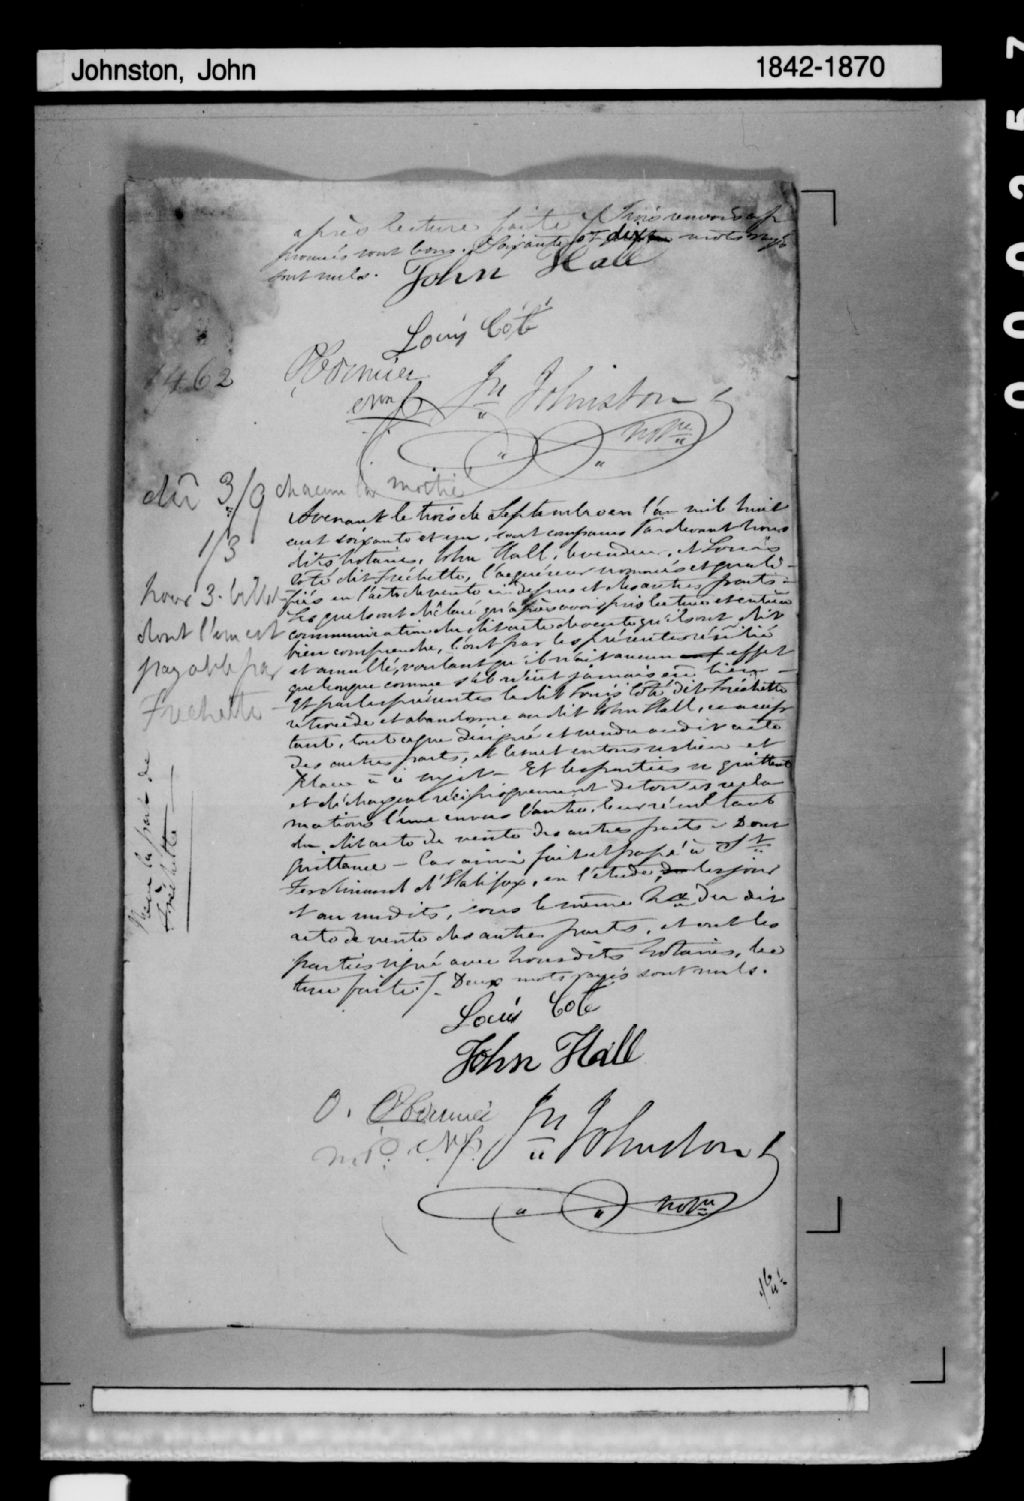 Johnston, John 1842-1870
00257
après lecture faite Trois renvois ap
prouvés sont bons. Soixante et dix mots rayés
sont nuls.
John Hall
Louis Côté
1462
Jn Johnston
Notre
dû 3/9 chacun la moitié
1/3
pour 3. billets
dont l'un est
payable par
Frechette
pour la part de
Frechette
Avenant le trois de Septembre en l'an mil huit
cent soixante et un, sont comparus Pardevant nous
dits notaires, John Hall, le vendeur, et Louis
Côté dit Fréchette, l'acquéreur nommés et quali-
fiés en l'acte de vente ci dessus et des autres parts -
Lesquels ont déclaré qu'après avoir pris lecture et entière
communication du dit acte de vente qu'ils ont dit
bien comprendre, l'ont par les présentes résilié
et annullé, voulant qu'il n'ait aucun effet
quelconque comme s'il n'eut jamais eu lieu -
Et par les présentes le dit Louis Côté dit Fréchette
rétrocède et abandonne au dit John Hall, ce accep
tant, tout ce que désigné et vendu au dit acte
des autres parts, et le met en tous ses lieu et
place à ce sujet - Et les parties se quittent
et déchargent réciproquement de toutes récla
mations l'une envers l'autre, leur résultant
du dit acte de vente des autres parts - Dont
quittance - Car ainsi fait et passé à St
Ferdinand d'Halifax, en l'étude, les jour
et an susdits, sous le même No du dit
acte de vente des autres parts, et ont les
parties signé avec nous dits Notaires, lec
ture faite. Deux mots rayés sont nuls.
Louis Côté
John Hall
Jn Johnston
Notre